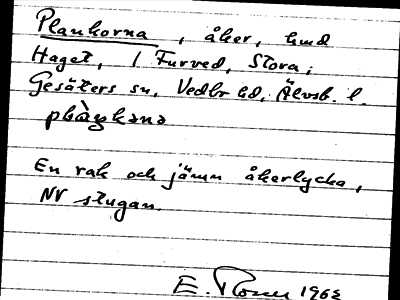 Plankorna, åker, hmd
Haget, 1 Furved, Stora;
Gesäters sn, Vedbo hd, Älvsb. l.
plàŋkəna
En rak och jämn åkerlycka,
NV stugan.
E. 1962